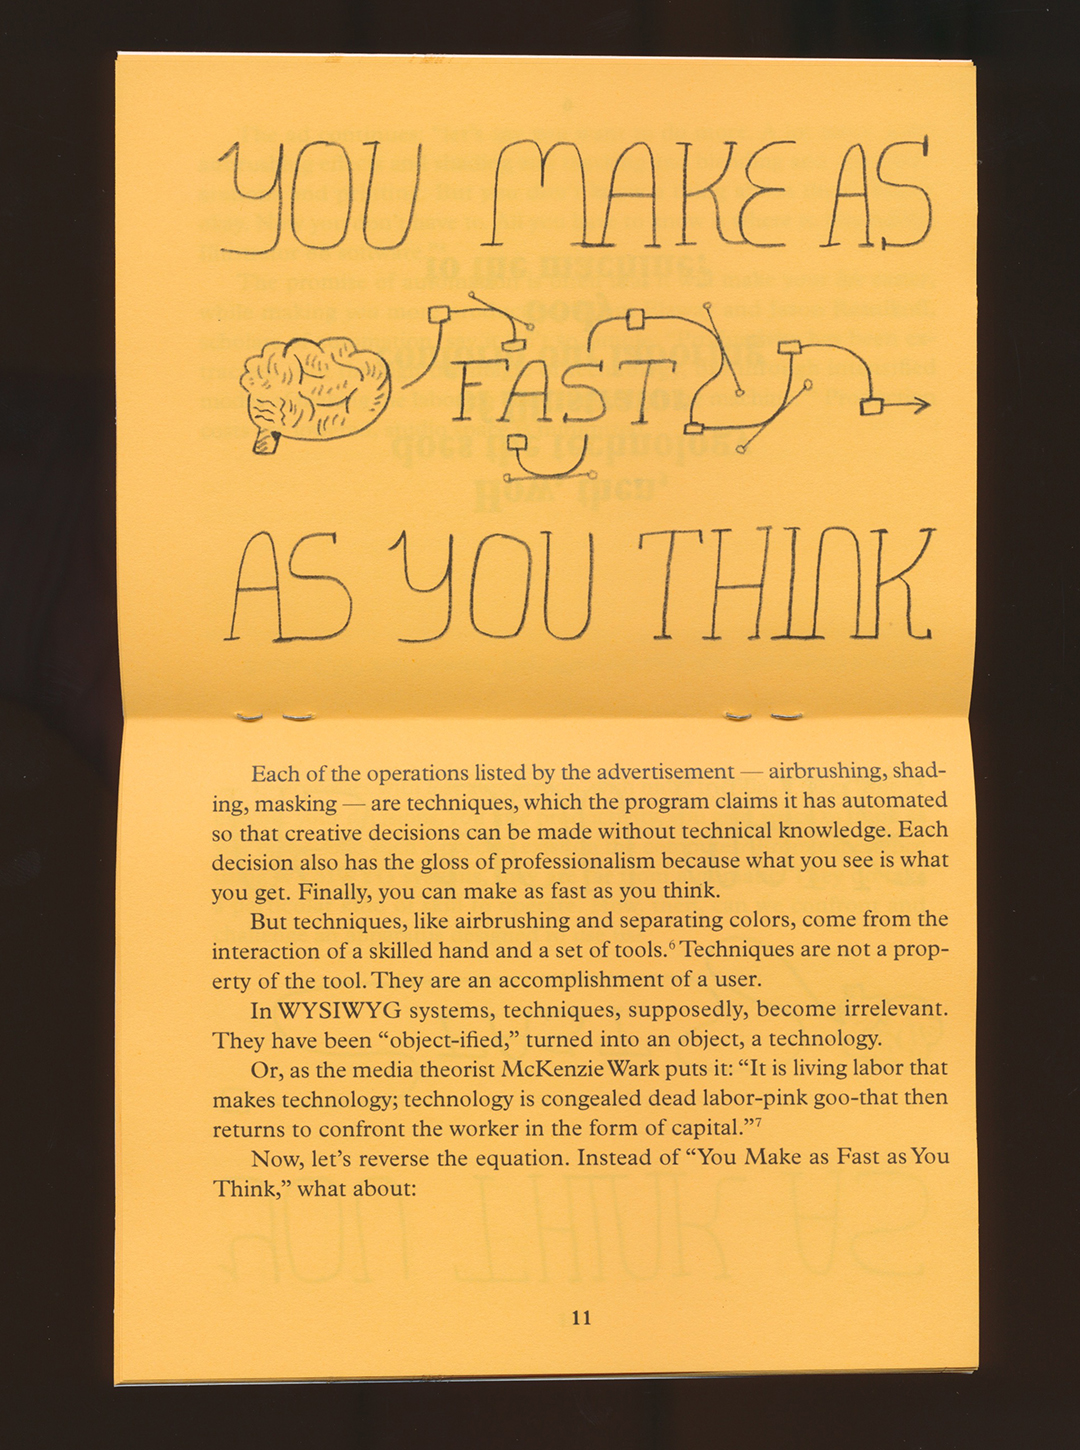 YOU MAKE AS
FAST
AS YOU THINK
Each of the operations listed by the advertisement — airbrushing, shad-
ing, masking — are techniques, which the program claims it has automated
so that creative decisions can be made without technical knowledge. Each
decision also has the gloss of professionalism because what you see is what
you get. Finally, you can make as fast as you think.
But techniques, like airbrushing and separating colors, come from the
interaction of a skilled hand and a set of tools.⁶ Techniques are not a prop-
erty of the tool. They are an accomplishment of a user.
In WYSIWYG systems, techniques, supposedly, become irrelevant.
They have been “object-ified,” turned into an object, a technology.
Or, as the media theorist McKenzie Wark puts it: “It is living labor that
makes technology; technology is congealed dead labor-pink goo-that then
returns to confront the worker in the form of capital.”⁷
Now, let’s reverse the equation. Instead of “You Make as Fast as You
Think,” what about:
11